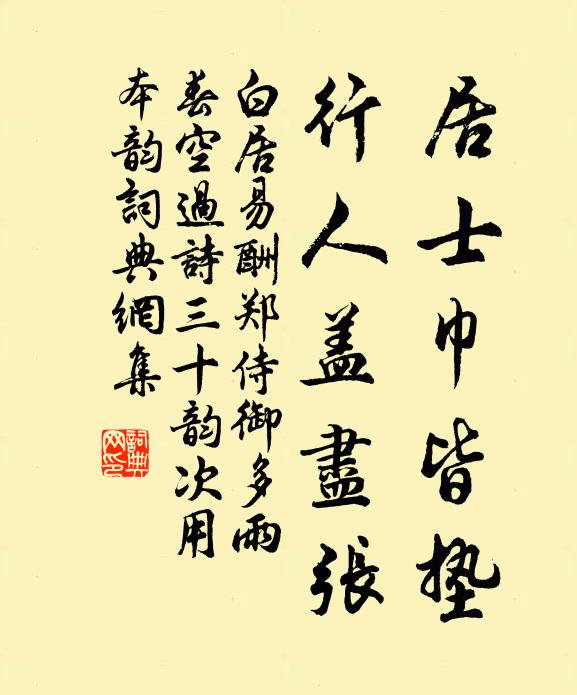 居士巾皆墊
行人盖盡張
白居易酬郑侍御多雨
春空過詩三十韵次用
本韵詞典網集
詞典网印